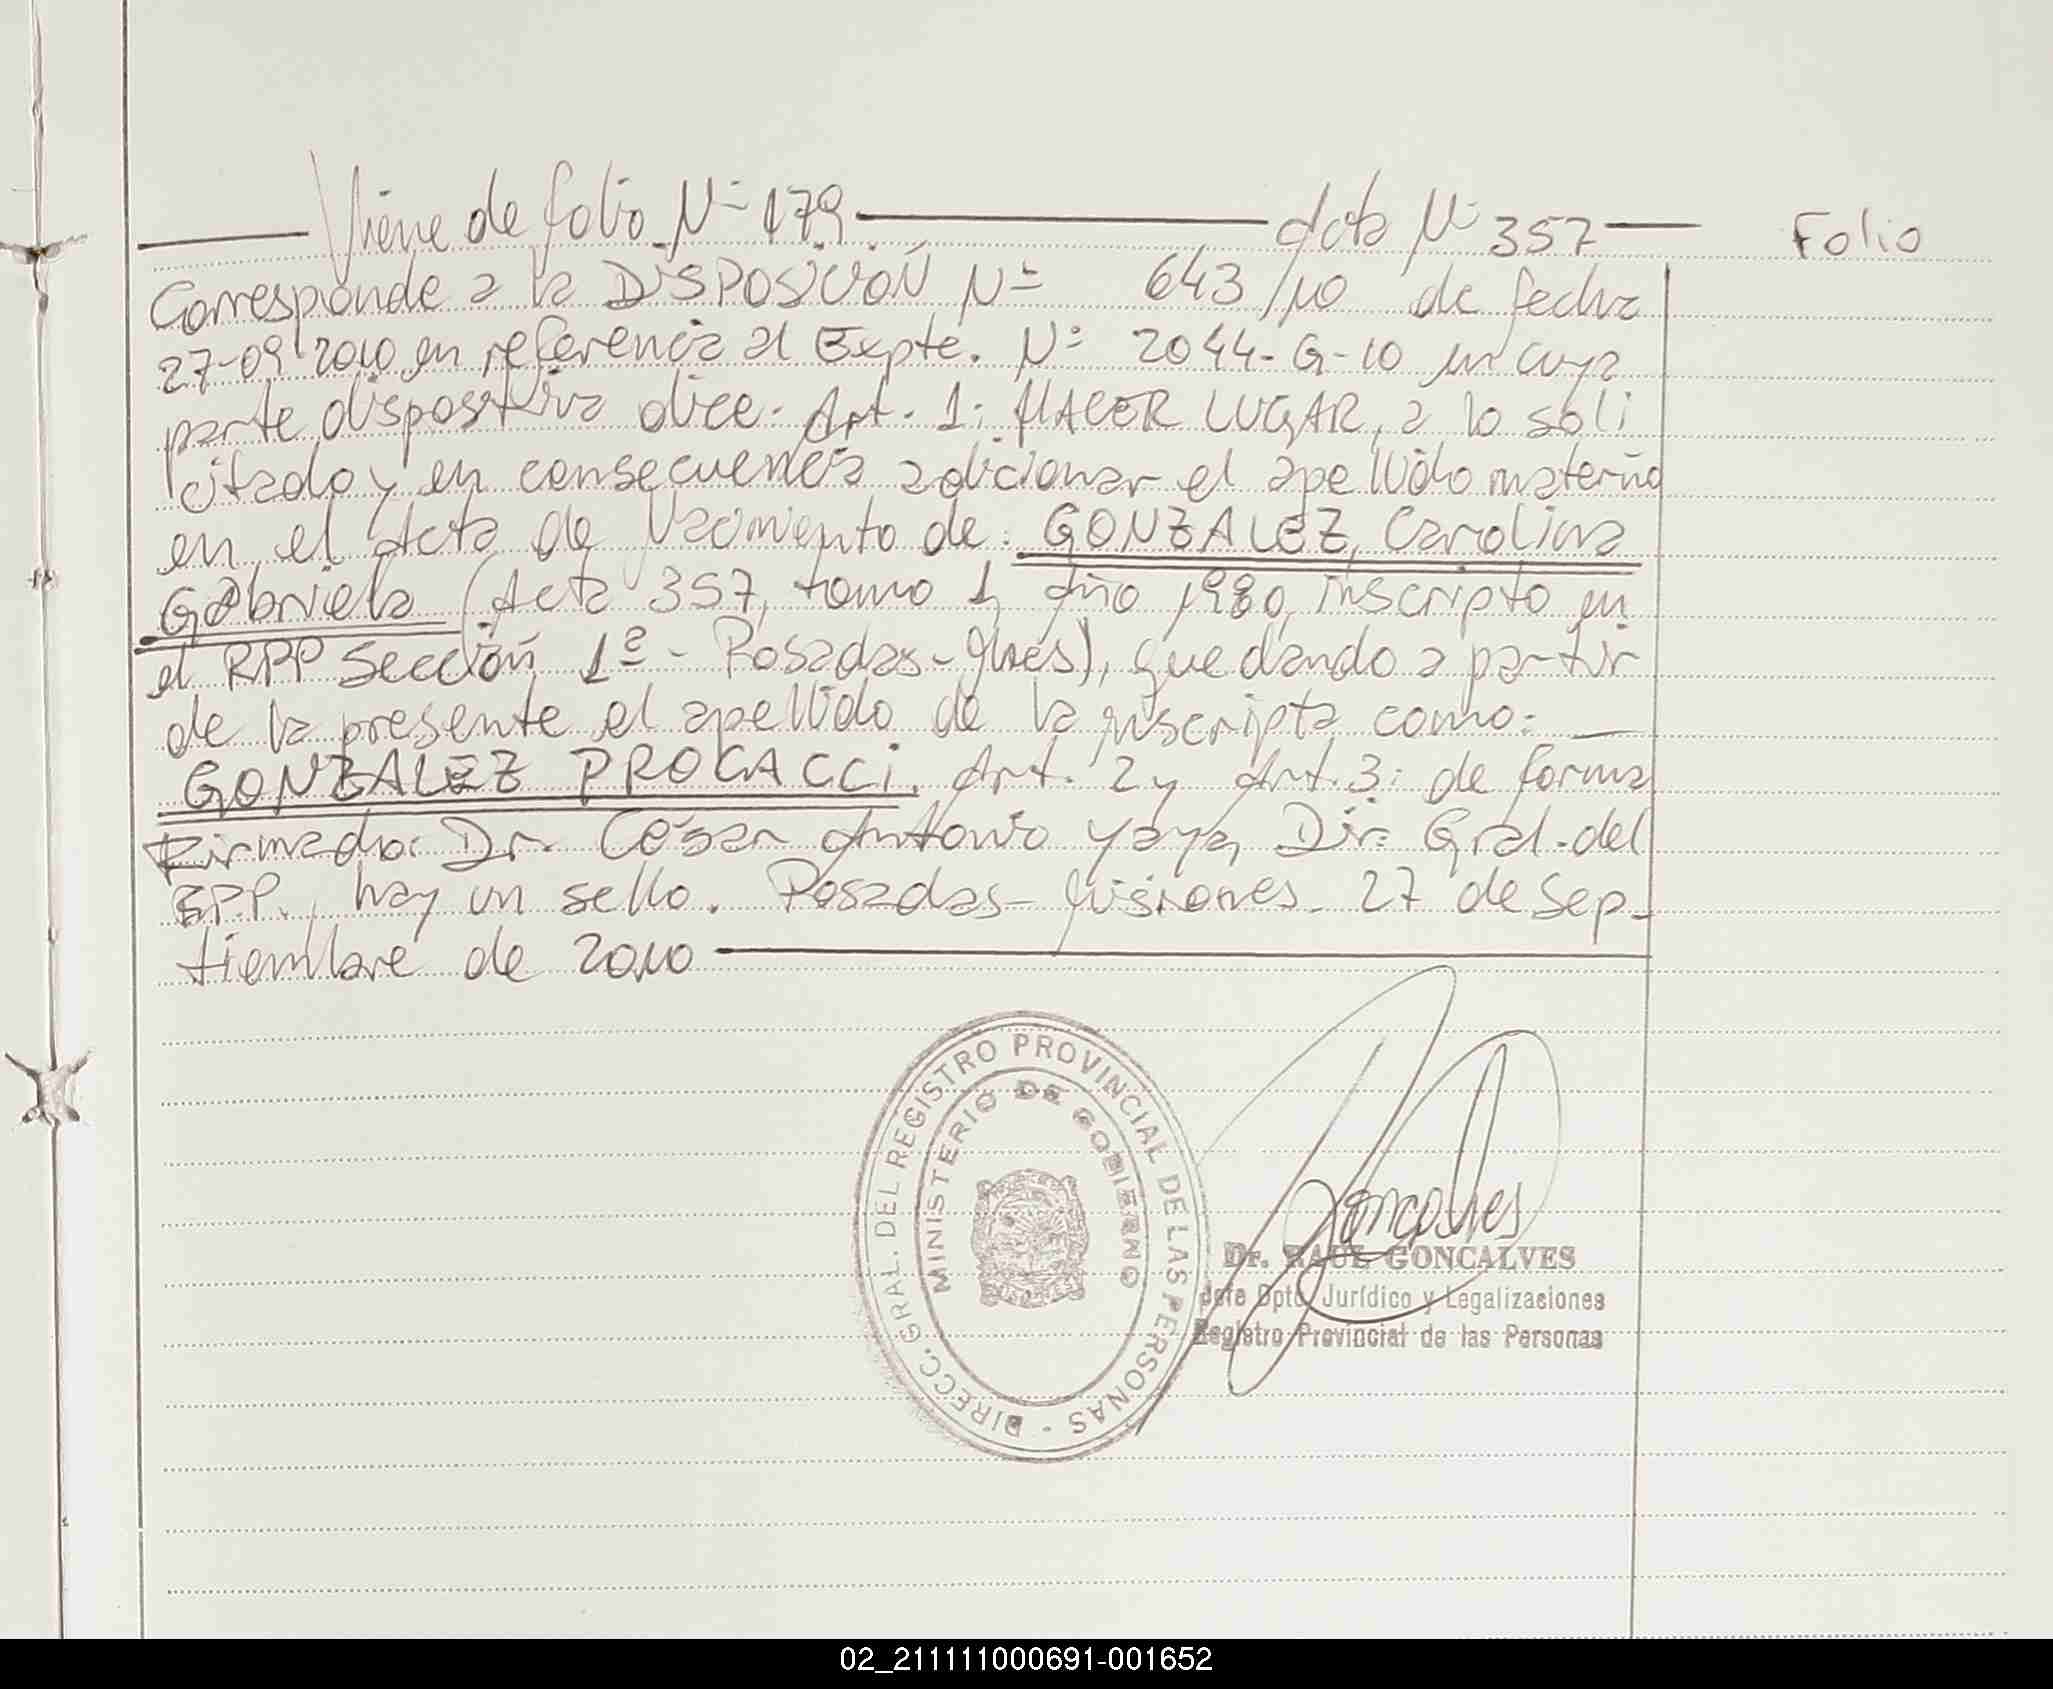 Viene de folio Nº 179 Acta Nº 357 Folio
Corresponde a la DISPOSICIÓN Nº 643/10 de fecha
27-09-2010 en referencia al Expte. Nº 2044-G-10 en cuya
parte dispositiva dice: Art. 1: HACER LUGAR, a lo soli
citado y en consecuencia adicionar el apellido materno
en el Acta de Nacimiento de: GONZALEZ, Carolina
Gabriela (Acta 357, tomo 1, Año 1980, inscripto en
el RPP Sección 1ª - Posadas - Mnes), quedando a partir
de la presente el apellido de la inscripta como:
GONZALEZ PROCACCI. Art. 2 y Art. 3: de forma
Firmado: Dr. César Antonio Yaya, Dir. Gral. del
RPP. hay un sello. Posadas - Misiones - 27 de Sep-
tiembre de 2010
DIRECC. GRAL. DEL REGISTRO PROVINCIAL DE LAS PERSONAS -
MINISTERIO DE GOBIERNO
Goncalves
Dr. RAUL GONCALVES
Jefe Dpto. Jurídico y Legalizaciones
Registro Provincial de las Personas
02_211111000691-001652